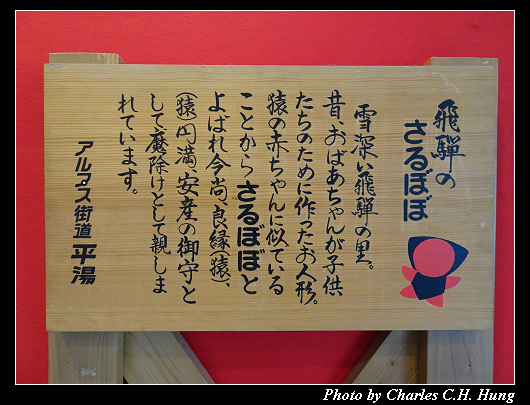 飛騨の
さるぼぼ
雪深い飛騨の里。
昔、おばあちゃんが子供
たちのために作ったお人形。
猿の赤ちゃんに似ている
ことからさるぼぼと
よばれ今尚、良縁(猿)、
(猿)円満、安産の御守と
して魔除けとして親しま
れています。
アルプス街道 平湯
Photo by Charles C.H. Hung